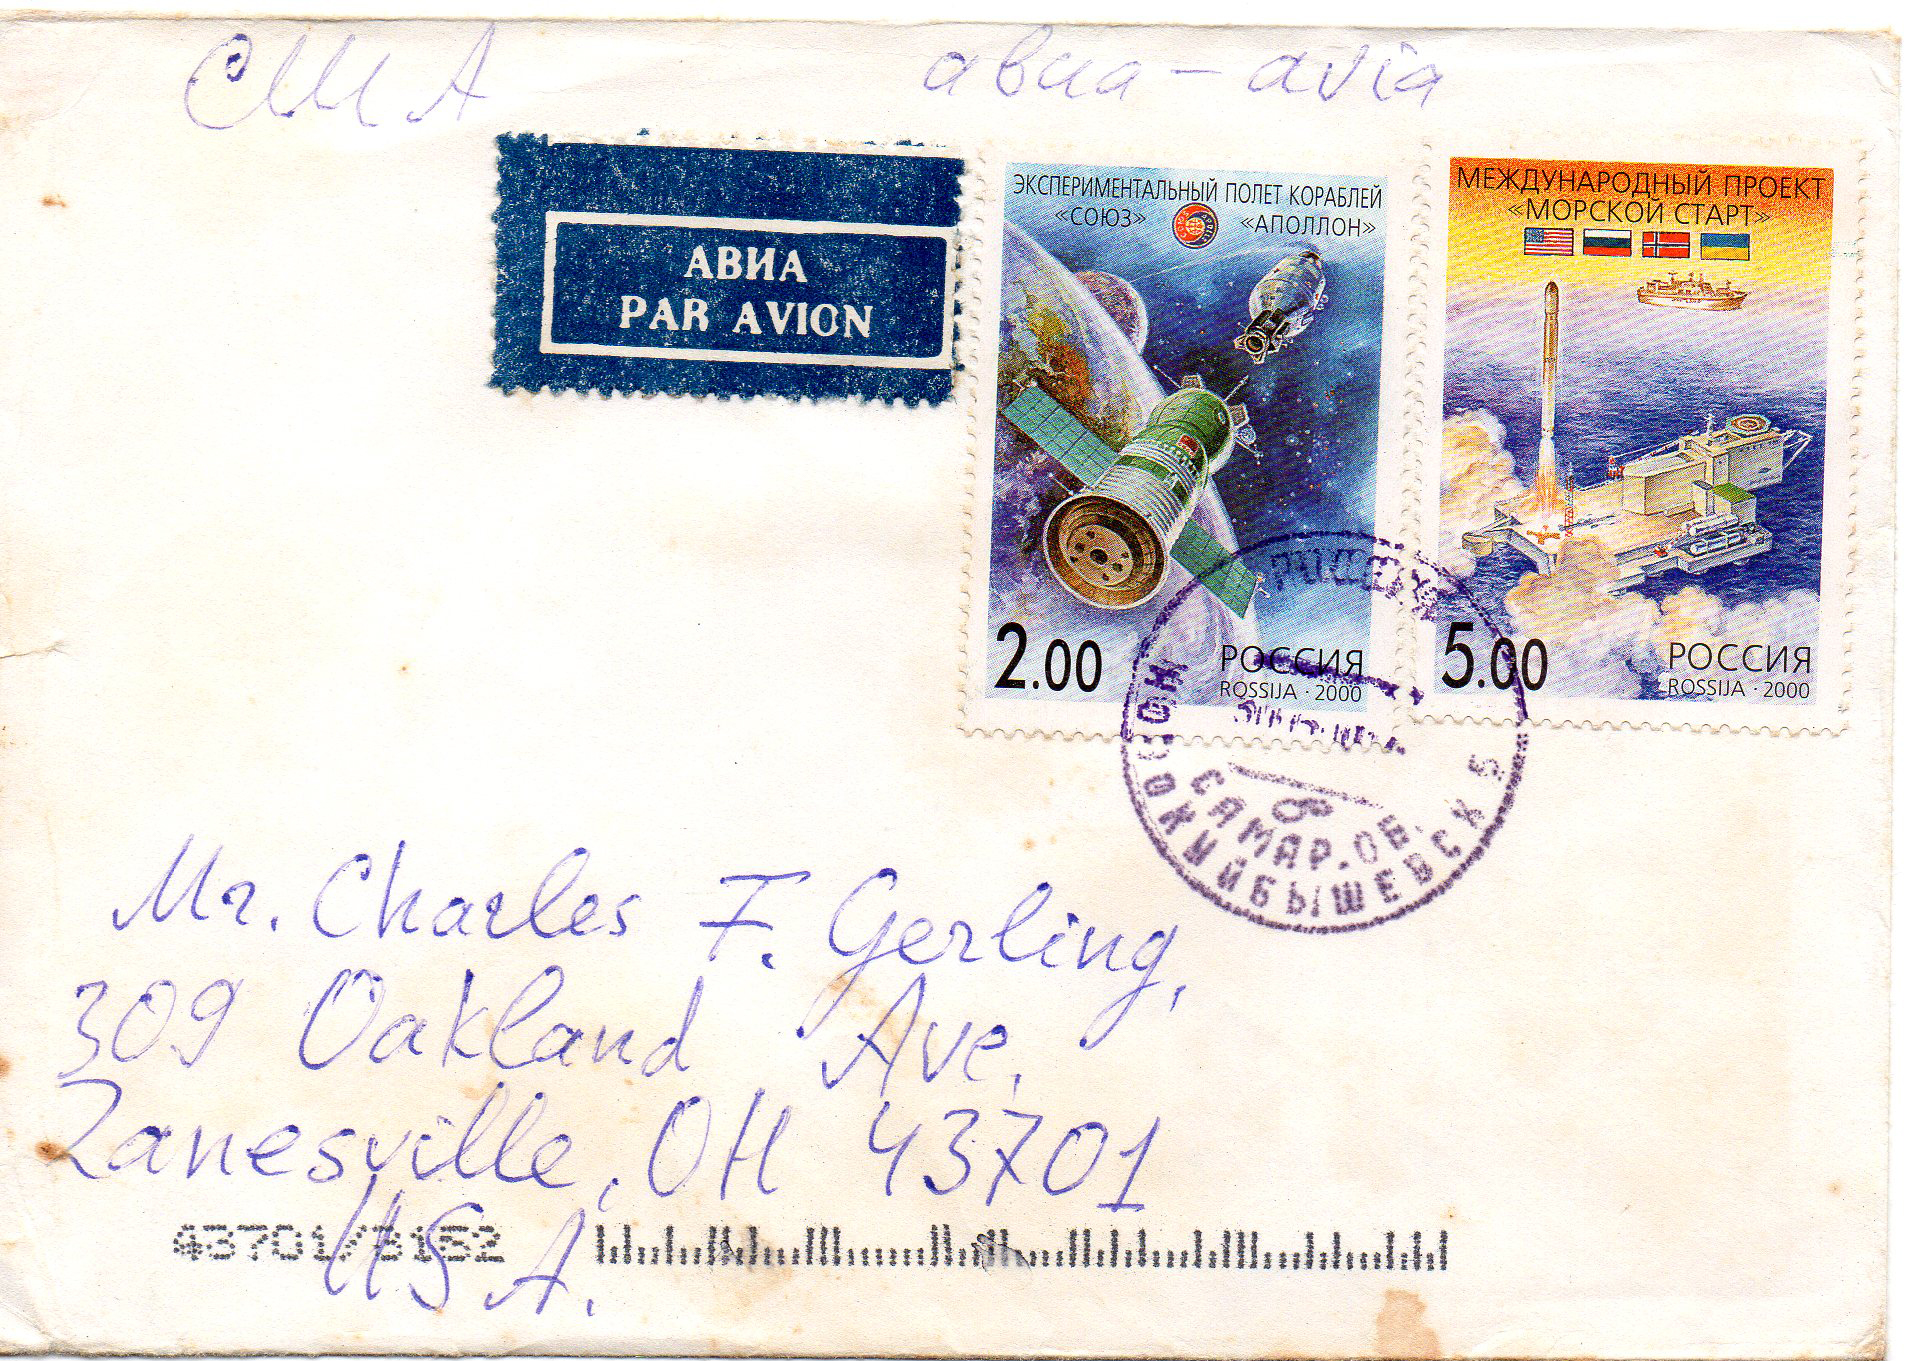 США авиа - avia
АВИА
PAR AVION
ЭКСПЕРИМЕНТАЛЬНЫЙ ПОЛЕТ КОРАБЛЕЙ
«СОЮЗ» «АПОЛЛОН»
2.00
РОССИЯ
ROSSIJA · 2000
МЕЖДУНАРОДНЫЙ ПРОЕКТ
«МОРСКОЙ СТАРТ»
5.00
РОССИЯ
ROSSIJA · 2000
САМАР. ОБЛ.
НОВОКУЙБЫШЕВСК 5
Mr. Charles F. Gerling,
309 Oakland Ave.
Zanesville, OH 43701
USA.